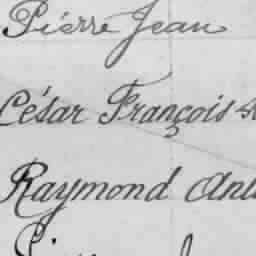 Piérre Jean
César François
Raymond